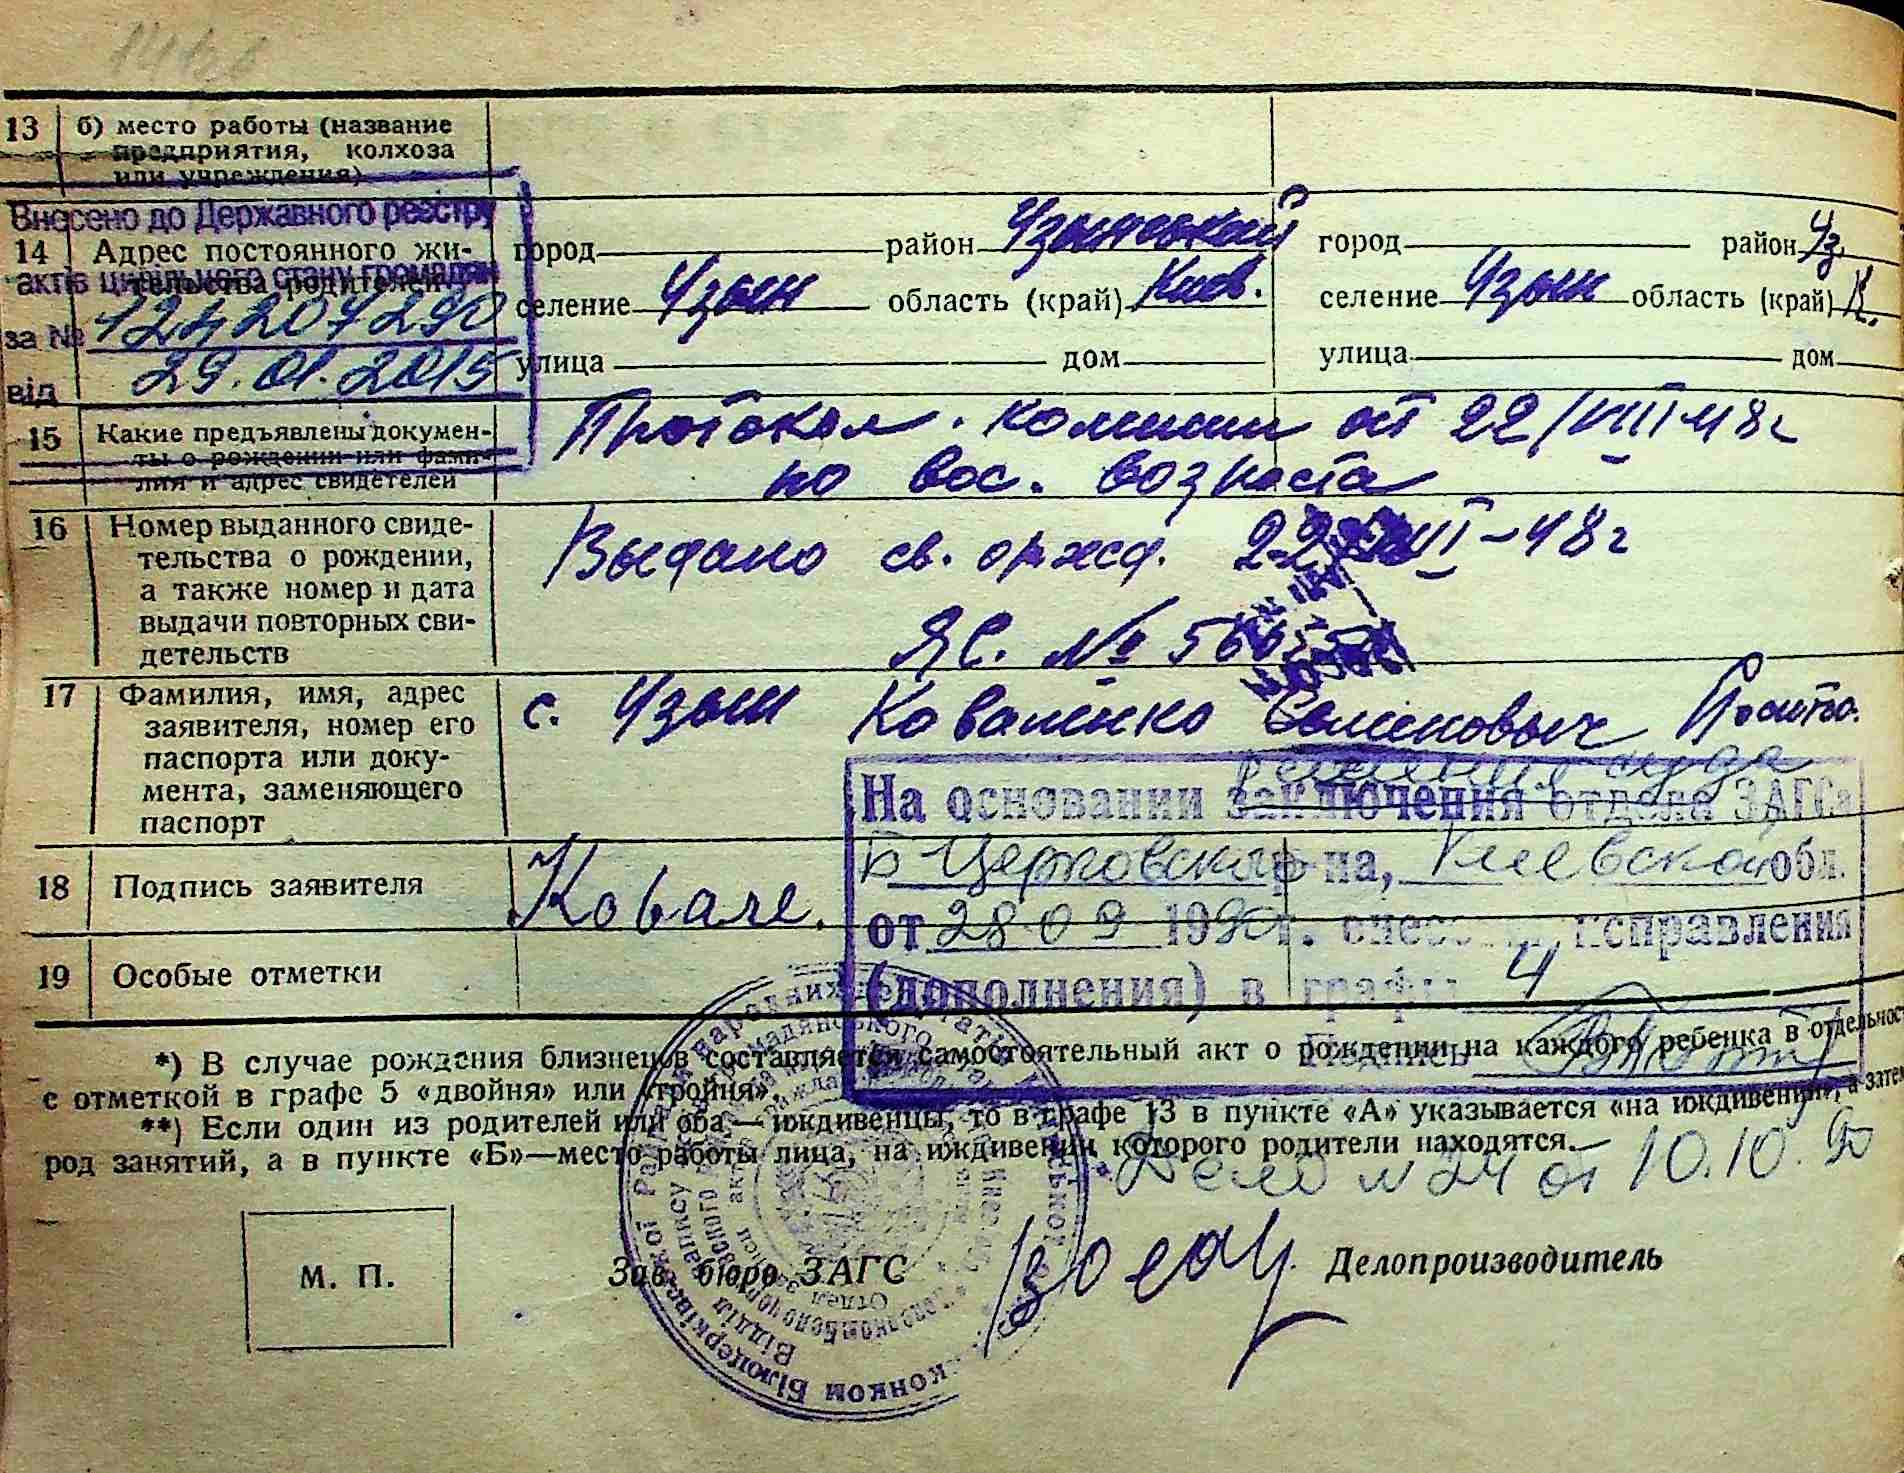 13 б) место работы (название
предприятия, колхоза
или учреждения)
Внесено до Державного реєстру
актів цивільного стану громадян
за № 124207290
від 29.01.2015
14 Адрес постоянного жи-
тельства родителей
город район Узынський город район Уз.
селение Узын область (край) Киев. селение Узын область (край) К.
улица дом улица дом
15 Какие предъявлены докумен-
ты о рождении или фами-
лия и адрес свидетелей
Протокол комиссии от 22/VIII-48 г
по вос. возраста
16 Номер выданного свиде-
тельства о рождении,
а также номер и дата
выдачи повторных сви-
детельств
Выдано св. о ржд. 22 VIII-48 г
ЯС. №
17 Фамилия, имя, адрес
заявителя, номер его
паспорта или доку-
мента, заменяющего
паспорт
с. Узын Коваленко Семеновыч
решения суда
На основании заключения отдела ЗАГСа
Б Церковского р-на, Киевской обл.
от 28 09 1990 г. внесены исправления
(дополнения) в графы 4
Подпись
18 Подпись заявителя Ковале.
19 Особые отметки
*) В случае рождения близнецов составляется самостоятельный акт о рождении на каждого ребенка в отдельност
с отметкой в графе 5 «двойня» или «тройня».
**) Если один из родителей или оба — иждивенцы, то в графе 13 в пункте «А» указывается «на иждивении», а затем
род занятий, а в пункте «Б»—место работы лица, на иждивении которого родители находятся.
Дело № 24 от 10.10.90
М. П. Зав. бюро ЗАГС Делопроизводитель